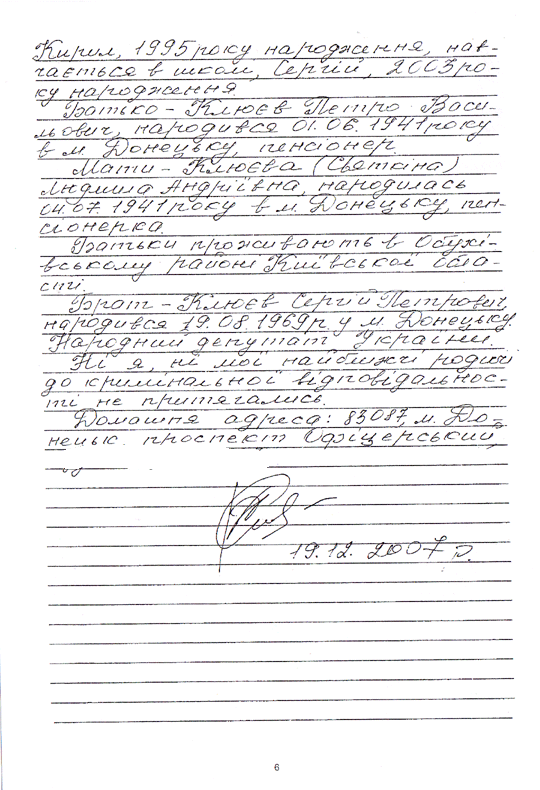 Кирил, 1995 року народження, нав-
чається в школі, Сергій, 2003 ро-
ку народження.
Батько - Клюєв Петро Васи-
льович, народився 01.06.1941 року
в м. Донецьку, пенсіонер.
Мати - Клюєва (Святкіна)
Людмила Андріївна, народилась
04.07.1941 року в м. Донецьку, пен-
сіонерка.
Батьки проживають в Обухі-
вському районі Київської обла-
сті.
Брат - Клюєв Сергій Петрович,
народився 19.08.1969 р. у м. Донецьку.
Народний депутат України.
Ні я, ні мої найближчі родичі
до кримінальної відповідальнос-
ті не притягались.
Домашня адреса: 83087, м. До-
нецьк. проспект Офіцерський,
19.12.2007 р.
6